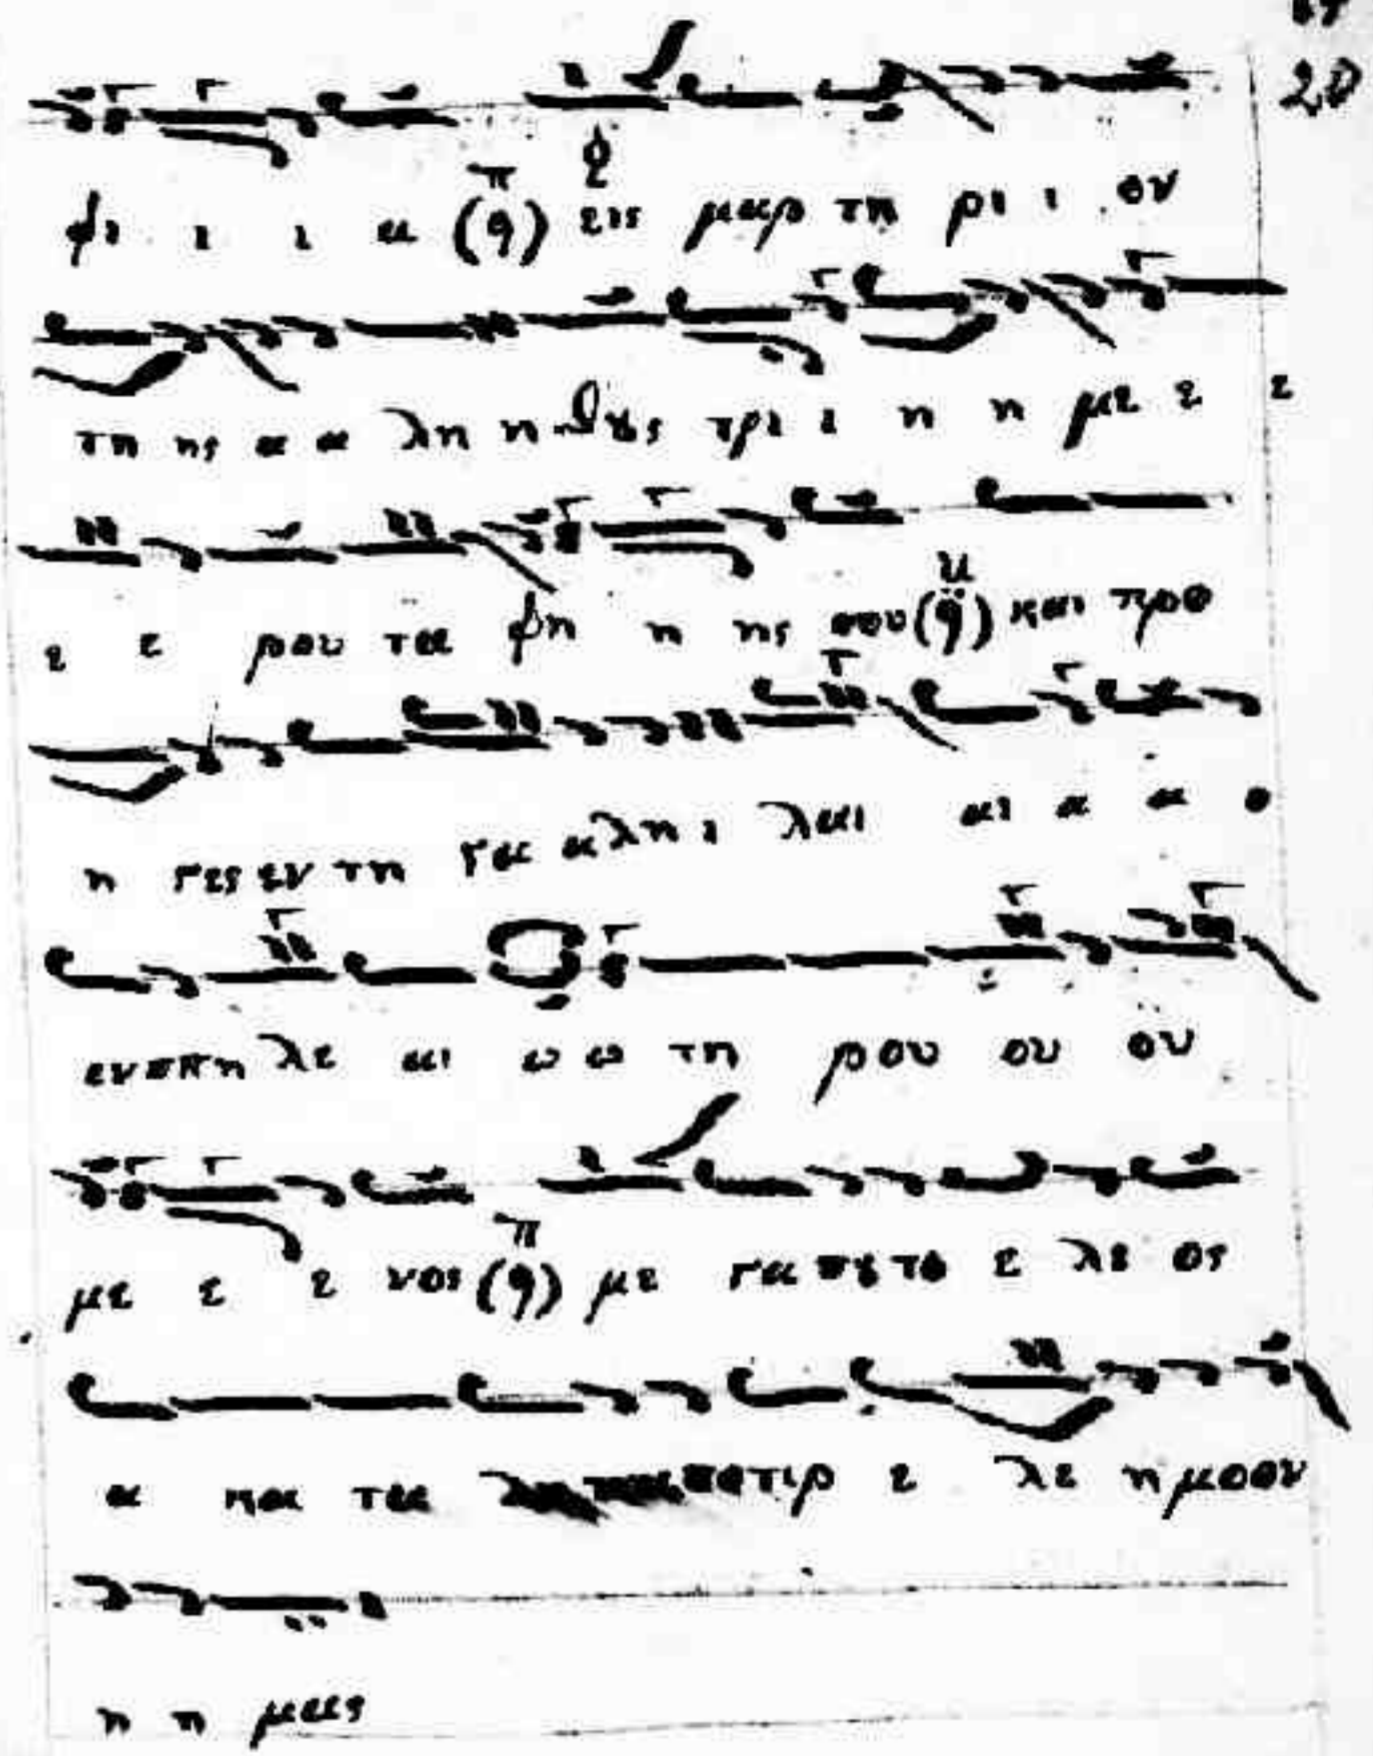 20
φι ι ι α (q) π εις μαρ τη ρι ι ον
τη ης α α λη η θȣς τρι ι η η με ε ε
ε ε ρου τα φη η ης σου (q) και προ
η γες εν τη γα α λη ι λαι αι α α ο
εν πτη λε αι ω ω τη ρου ου ου
με ε ε νος (q) π με γα πȣ το ε λε ος
α κα τα πατιρ ε λε ημοον
η η μας